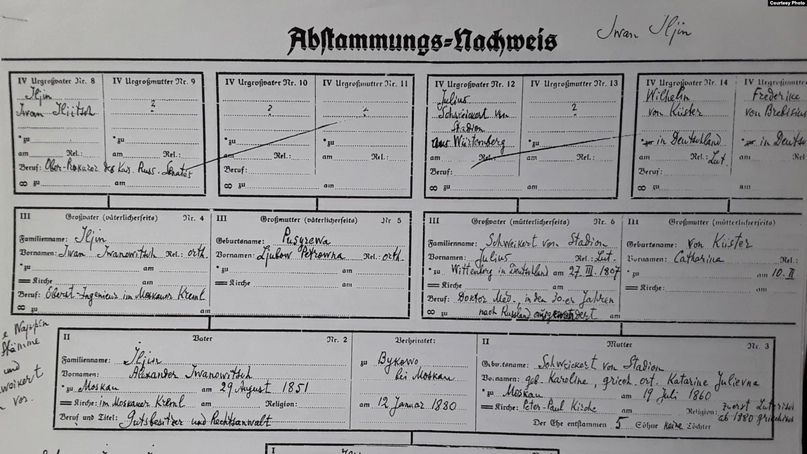 Courtesy Photo
Abstammungs-Nachweis
Iwan Iljin
IV Urgroßvater Nr. 8
Iljin
Iwan Iljitsch
*zu
am Rel.:
Beruf: Ober-Prokuror des Kais. Russ. Senates
∞ zu am
IV Urgroßmutter Nr. 9
?
*zu
am Rel.:
IV Urgroßvater Nr. 10
?
*zu
am Rel.:
Beruf:
∞ zu am
IV Urgroßmutter Nr. 11
*zu
am Rel.:
IV Urgroßvater Nr. 12
Julius
Schweickert von
Stadion
aus Würtenberg
am Rel.:
Beruf:
∞ zu am
IV Urgroßmutter Nr. 13
?
*zu
am Rel.:
IV Urgroßvater Nr. 14
Wilhelm
von Küster
in Deutschland
am Rel.: Lut.
Beruf:
∞ zu am
IV Urgroßmutter
Frederike
von
in Deutsc
am
III Großvater (väterlicherseits) Nr. 4
Familienname: Iljin
Vornamen: Iwan Iwanowitsch Rel.: orth.
*zu am
Kirche am
Beruf: im Moskauer Kreml
∞ zu am
III Großmutter (väterlicherseits) Nr. 5
Geburtsname: Pusyrewa
Vornamen: Ljubow Petrowna Rel.: orth.
*zu am
Kirche am
III Großvater (mütterlicherseits) Nr. 6
Familienname: Schweikert von Stadion
Vornamen: Julius Rel.: Lut.
*zu Wittenberg in Deutschland am 27. III. 1807
Kirche am
Beruf: Doktor Med., in den 30-er Jahren
nach Russland ausgewandert
∞ zu am
III Großmutter (mütterlicherseits)
Geburtsname: von Küster
Vornamen: Catharina
*zu am 10. II
Kirche: am
e Wappen
Stämme
und
weikert
von.
II Vater Nr. 2
Familienname: Iljin
Vornamen: Alexander Iwanowitsch
*zu Moskau am 29 August 1851
Kirche: im Moskauer Kreml am Religion:
Beruf und Titel: Gutsbesitzer und Rechtsanwalt
Verheiratet:
zu Bykowo
bei Moskau
am 12 Januar 1880
II Mutter Nr. 3
Geb.-name: Schweickert von Stadion
Vornamen: geb. Karoline, griech. ort. Katarine Julievna
*zu Moskau am 19 Juli 1860
Kirche: Peter-Paul Kirche am Religion: zuerst Luterisch
ab 1880
Der Ehe entstammen 5 Söhne keine Töchter
I